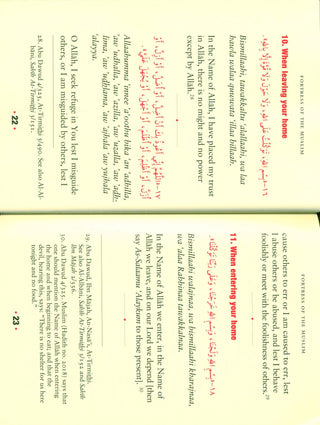 FORTRESS OF THE MUSLIM
10. When leaving your home
١٦- بِسْمِ اللهِ، تَوَكَّلْتُ عَلَى اللهِ، وَلَا حَوْلَ وَلَا قُوَّةَ إِلَّا بِاللهِ.
Bismillaahi, tawakkaltu 'alallaahi, wa laa
hawla walaa quwwata 'illaa billaah.
In the Name of Allah, I have placed my trust
in Allah, there is no might and no power
except by Allah.28
١٧- اللَّهُمَّ إِنِّي أَعُوذُ بِكَ أَنْ أَضِلَّ، أَوْ أُضَلَّ، أَوْ
أَزِلَّ، أَوْ أُزَلَّ، أَوْ أَظْلِمَ، أَوْ أُظْلَمَ، أَوْ أَجْهَلَ، أَوْ يُجْهَلَ عَلَيَّ.
Allaahumma 'innee 'a'oothu bika 'an 'adhilla,
'aw 'udhalla, 'aw 'azilla, 'aw 'uzalla, 'aw 'adh-
lima, 'aw 'udhlama, 'aw 'ajhala 'aw yujhala
'alayya.
O Allah, I seek refuge in You lest I misguide
others, or I am misguided by others, lest I
28. Abu Dawud 4/325, At-Tirmithi 5/490. See also Al-Al-
bani, Sahih At-Tirmithi 3/151.
22
FORTRESS OF THE MUSLIM
cause others to err or I am caused to err, lest
I abuse others or be abused, and lest I behave
foolishly or meet with the foolishness of others.29
11. When entering your home
١٨- بِسْمِ اللهِ وَلَجْنَا، وَبِسْمِ اللهِ خَرَجْنَا، وَعَلَى رَبِّنَا تَوَكَّلْنَا.
Bismillaahi walajnaa, wa bismillaahi kharajnaa,
wa 'alaa Rabbinaa tawakkalnaa.
In the Name of Allah we enter, in the Name of
Allah we leave, and on our Lord we depend [then
say As-Salaamu 'Alaykum to those present].30
29. Abu Dawud, Ibn Majah, An-Nasa'i, At-Tirmithi.
See also Al-Albani, Sahih At-Tirmithi 3/152 and Sahih
Ibn Majah 2/336.
30. Abu Dawud 4/325. Muslim (Hadith no. 2018) says that
one should mention the Name of Allah when entering
the home and when beginning to eat; and that the
devil, hearing this, says: "There is no shelter for us here
tonight and no food."
23